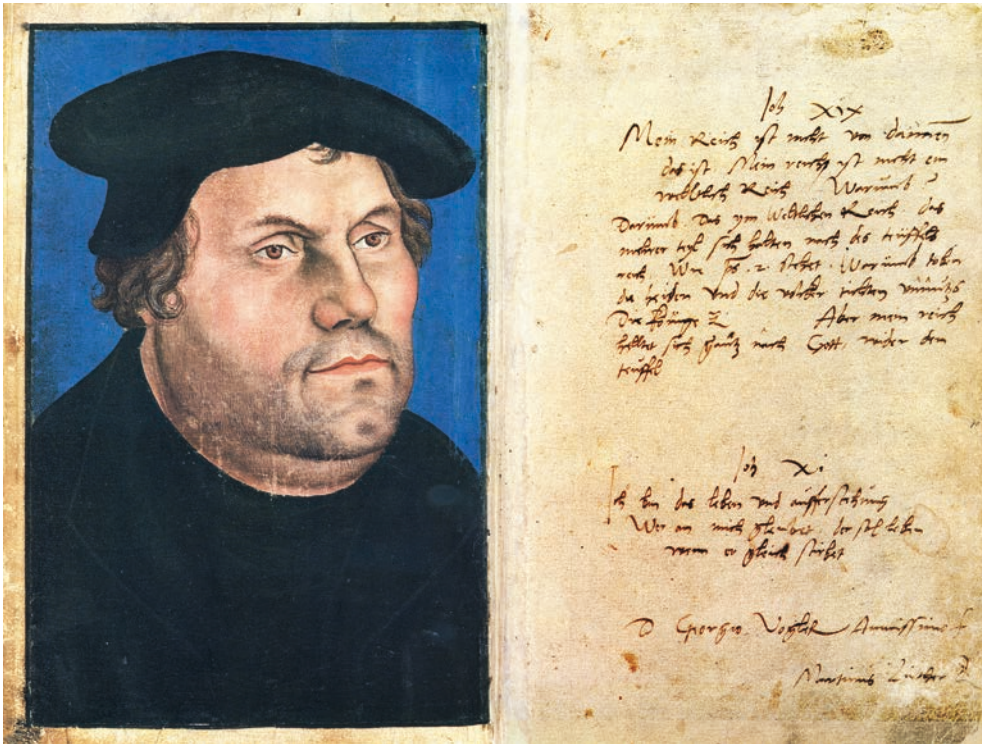 Joh XIX
Mein Reich ist nicht von dannen
das ist Mein reich ist nicht ein
welltlich Reich Warumb?
Darumb Das ym Welltlichen Reich. das
mehrer teyl sich hallten nach des teuffels
reich, Wie ps. 2. stehet. Warumb toben
die heiden Und die volcker tichten unnutz
Die Könige Aber mein reich
helltet sich gantz nach Gott, wider den
teuffel
Joh XI
Ich bin das leben und aufferstehung
Wer an mich gleubet, der sol leben
wenn er gleich stirbet
D Georgio Vogler Amicissimo
Martinus Luther D